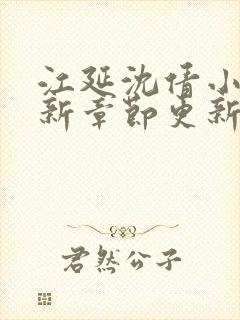 江延沈倩小
新章节更新
君然公子